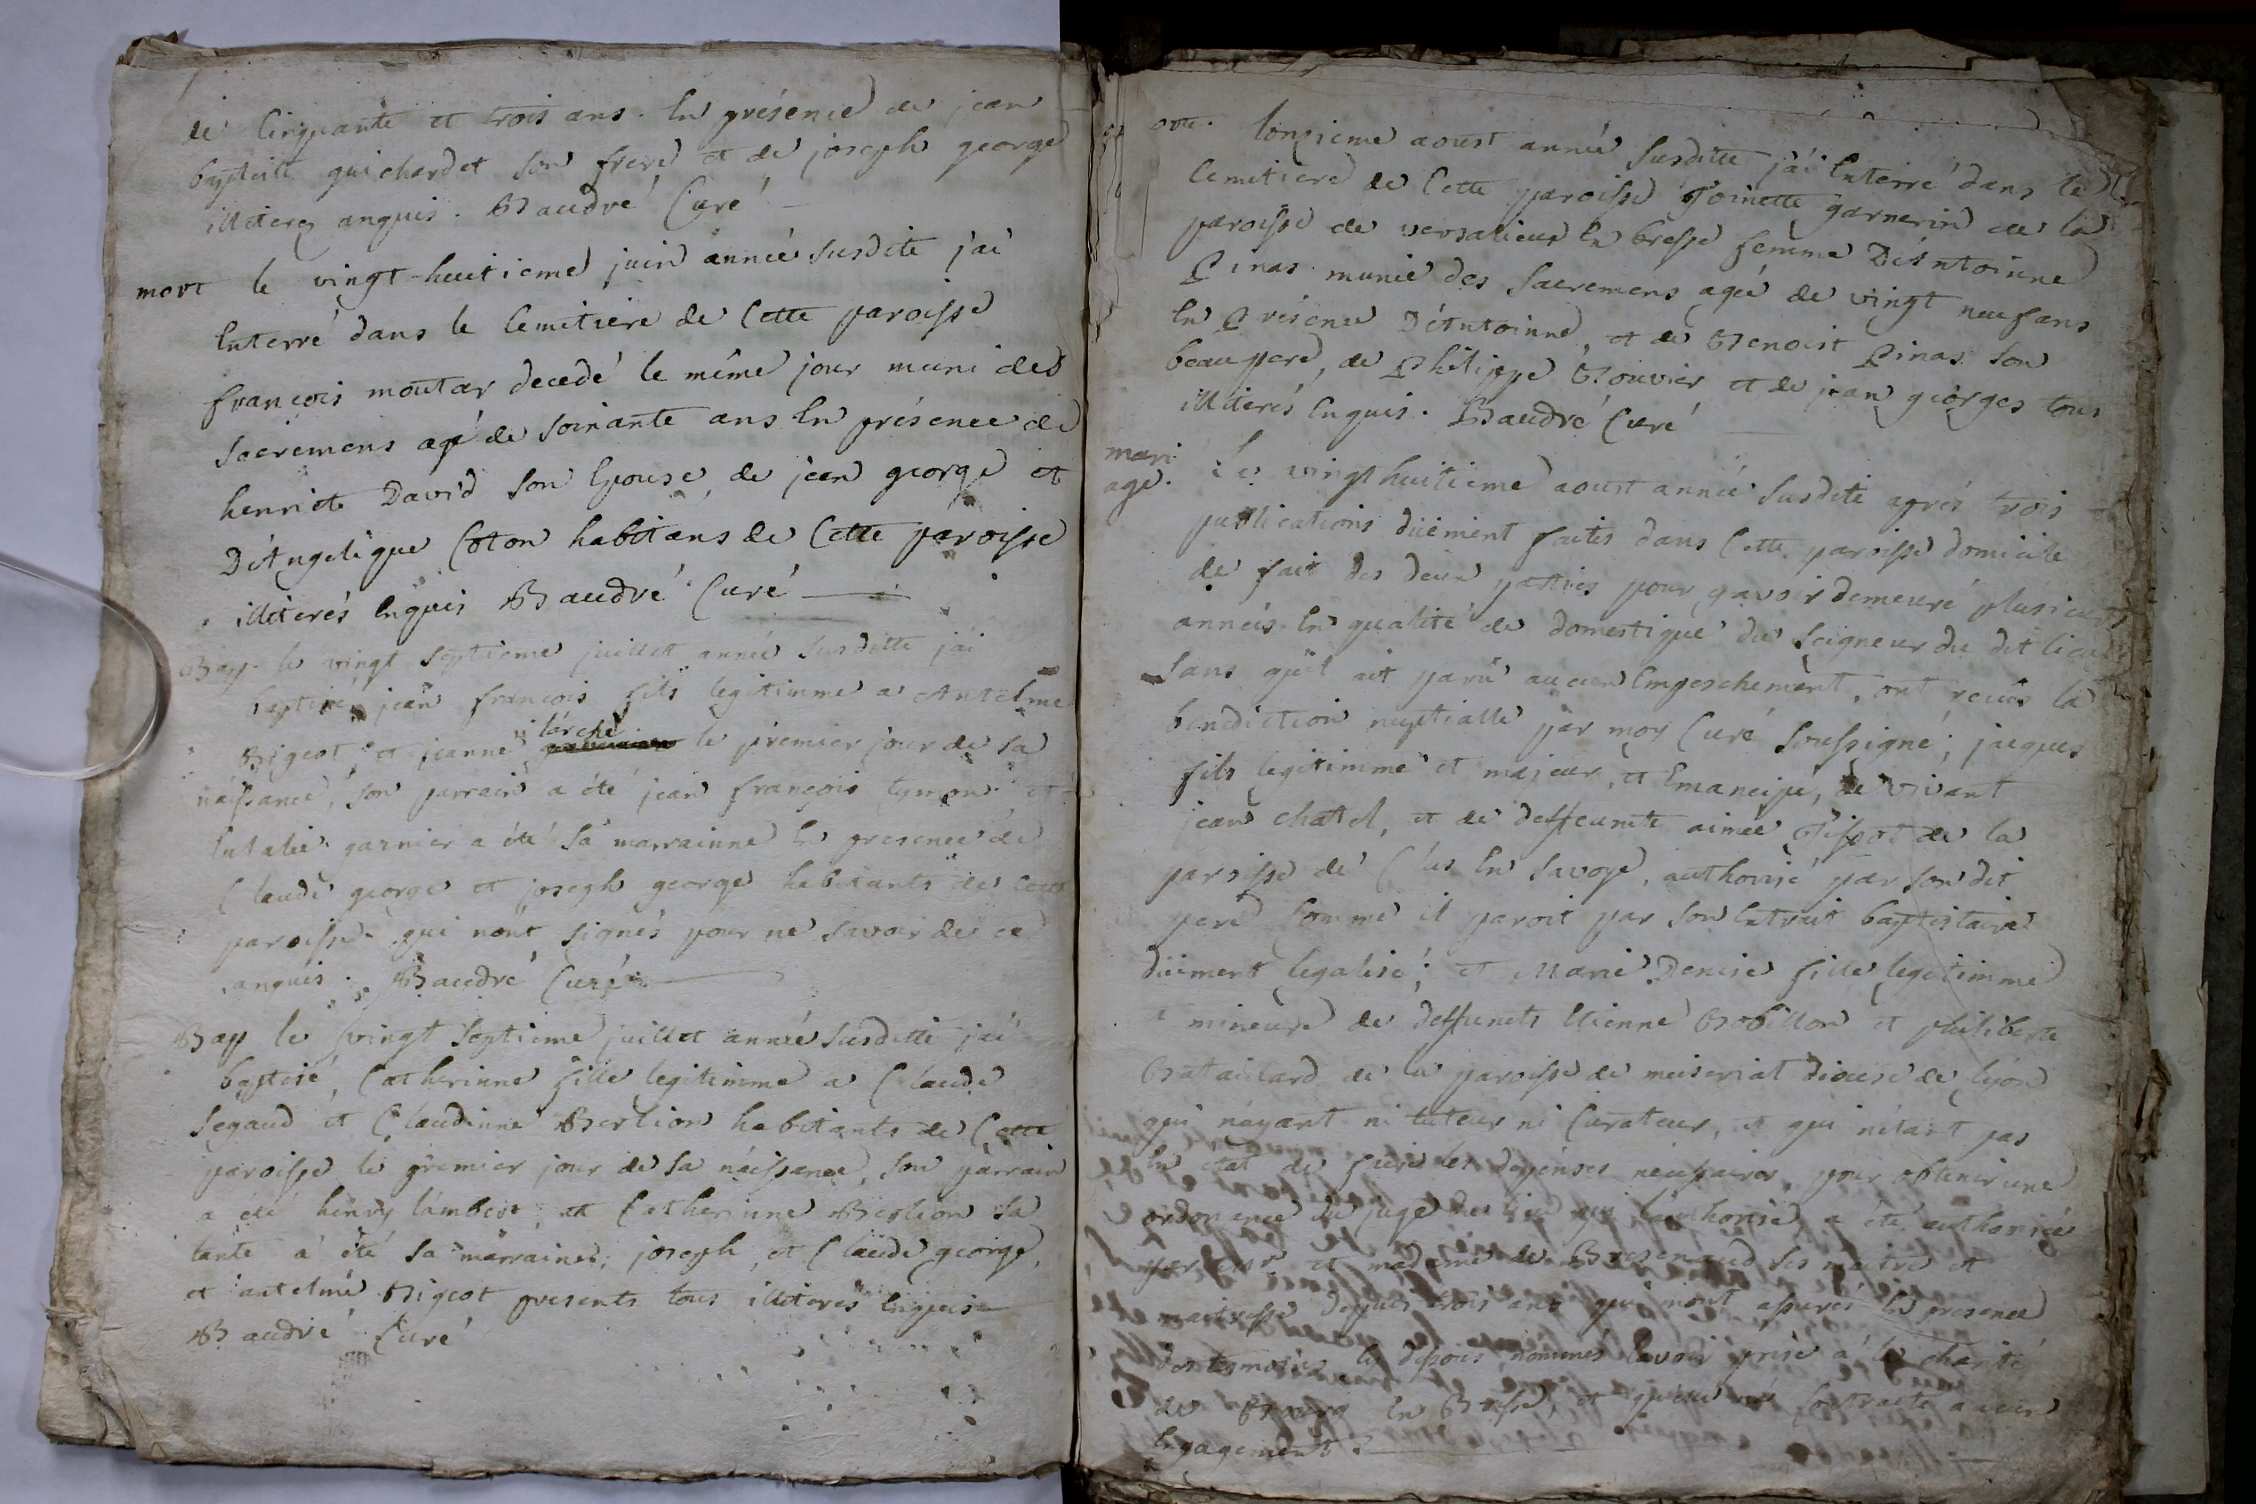 de Cinquante et trois ans. En présence de jean
baptiste guichardet son frere et de joseph george
illiterez anquis. Baudré Curé
mort le vingt-huitieme juin année susdite j'ai
Enterré dans le Cemitiere de Cette paroisse
françois moutar decedé le même jour muni des
sacremens agé de soixante ans En présence de
henriete David son Epouse, de jean george et
D'Angelique Coton habitans de Cette paroisse
illiterés Enquis Baudré Curé
Bap le vingt septieme juillet année susditte j'ai
baptisé jean françois fils legitimme a Antelme
Bigeot et jeanne lárché le premier jour de sa
náissance, son parrain a été jean françois tymon et
Eulalie garnier a été sa marrainne En presence de
Claude george et joseph george habitants de Cette
paroisse qui n'ont signés pour ne savoir de ce
anquis. Baudré Curé
Bap le vingt septieme juillet année susditte j'ai
baptisé, Catherinne fille legitimme a Claude
Segaud et Claudinne Berlion habitants de Cette
paroisse le premier jour de sa náissance, son parrain
a été henry lámbert, et Catherinne Berlion sa
tante a été sa marraine; joseph, et Claude george,
et antelme Bigeot presents tous illiterés Enquis
Baudré Curé
mort. lonzieme aoust année susditte j'ai Enterré dans le
Cemitiere de Cette paroisse Toinette garnerin de la
paroisse de versalieux En bresse femme D'Antoinne
Pinas munie des sacremens agée de vingt neuf ans
En Présence D'Antoinne, et de Benoist Pinas son
beaupere, de Philippe Bouvier et de jean georges tous
illiterés Enquis. Baudré Curé
mari Le vingt huitieme aoust année susdite aprés trois
age. publications düement faites dans Cette paroisse domicile
de fait des deux parties pour y avoir demeuré plusieurs
années En qualité de domestique du seigneur du dit lieu
sans qu'il ait parû aucun Empeschement, ont recüs la
benediction nuptialle par moy Curé soussigné; jacques
fils legitimme et majeur, et Emancipé, de vivant
jean chatel, et de deffeunte aimée Tissot de la
paroisse de Clus En savoye, authorisé par son dit
pere Comme il paroit par son Extrait baptistaire
düement legalisé; et Marie Denise fille legitimme
et mineure de deffunts Etienne Bobillon et philiberte
Bataillard de la paroisse de meiseriat diocese de lyon
qui náyant ni tuteur ni Curateur, et qui n'étant pas
En état de faire les dépenses necessaires pour obtenir une
ordonance du juge des lieu qui l'authorise, a été authorisée
par et madame de Bresenaud ses maitre et
maitresse depuis trois ans qui m'ont assurés En presence
des temoins Cy desois nommés l'avoir prise á la charité
de Bourg En Bresse, et Contracté aucun
Engagement.